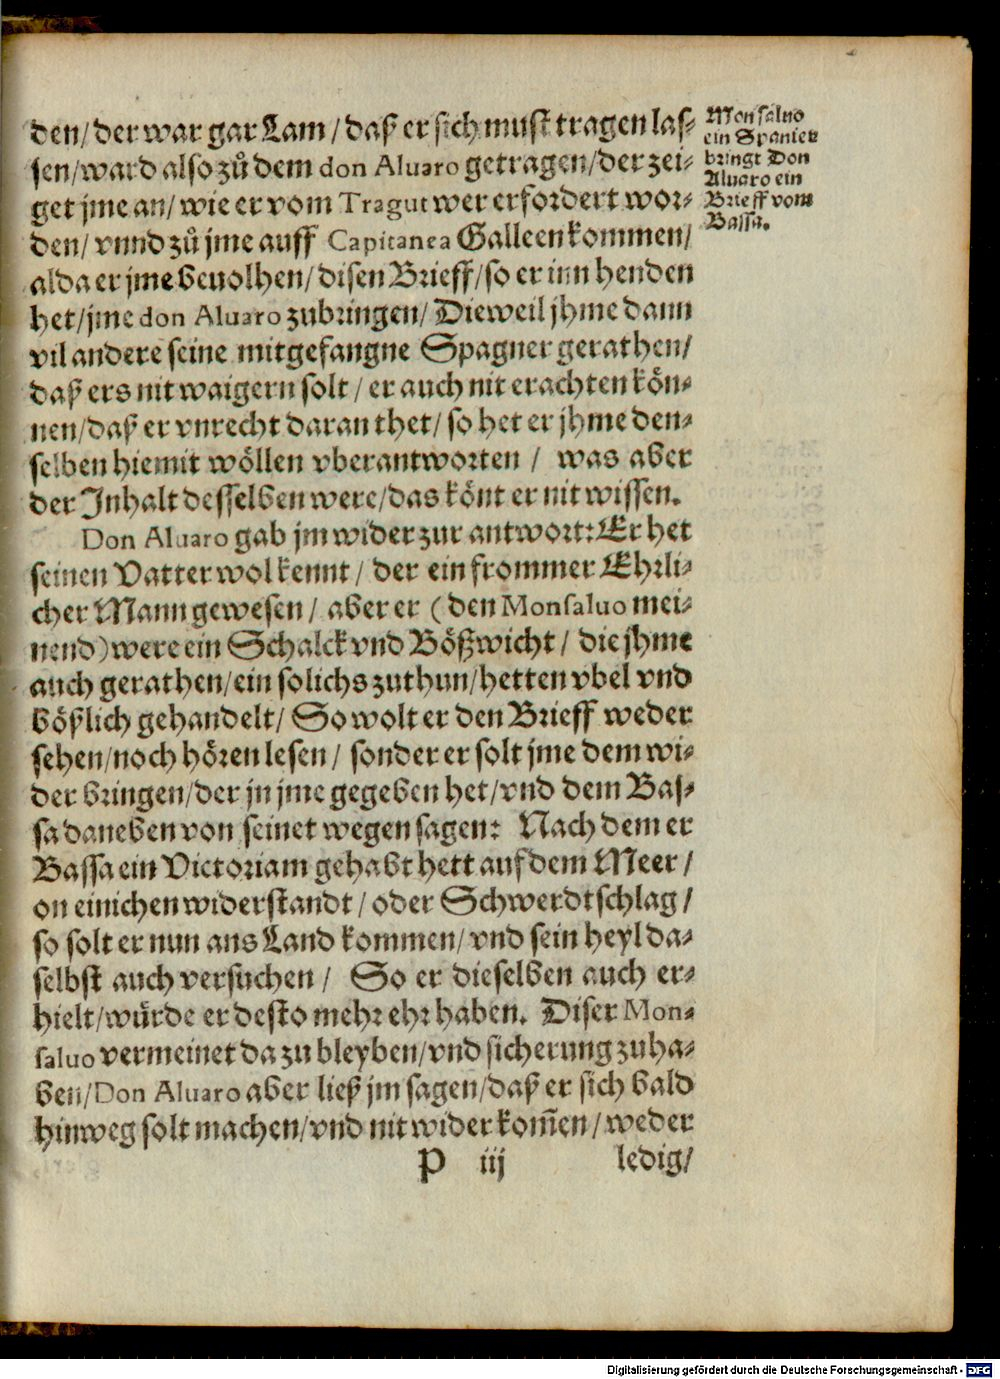 den/ der war gar Lam/ daß er sich must tragen las⸗
sen/ ward also zů dem don Aluaro getragen/ der zei⸗
get jme an/ wie er vom Tragut wer erfordert wor⸗
den/ vnnd zů jme auff Capitanea Galleen kommen/
alda er jme beuolhen/ disen Brieff/ so er inn henden
het/ jme don Aluaro zubringen/ Dieweil jhme dann
vil andere seine mitgefangne Spagner gerathen/
daß ers nit waigern solt/ er auch nit erachten kön⸗
nen/ daß er vnrecht daran thet/ so het er jhme den⸗
selben hiemit wöllen vberantworten/ was aber
der Inhalt desselben were/ das könt er nit wissen.
Don Aluaro gab jm wider zur antwort: Er het
seinen Vatter wol kennt/ der ein frommer Ehrli⸗
cher Mann gewesen/ aber er (den Monsaluo mei⸗
nend) were ein Schalck vnd Bößwicht/ die jhme
auch gerathen/ ein solichs zuthun/ hetten vbel vnd
bößlich gehandelt/ So wolt er den Brieff weder
sehen/ noch hören lesen/ sonder er solt jme dem wi⸗
der bringen/ der jn jme gegeben het/ vnd dem Bas⸗
sa daneben von seinet wegen sagen: Nach dem er
Bassa ein Victoriam gehabt hett auf dem Meer/
on einichen widerstandt/ oder Schwerdtschlag/
so solt er nun ans Land kommen/ vnd sein heyl da⸗
selbst auch versuchen/ So er dieselben auch er⸗
hielt/ würde er desto mehr ehr haben. Diser Mon⸗
saluo vermeinet da zu bleyben/ vnd sicherung zu ha⸗
ben/ Don Aluaro aber ließ jm sagen/ daß er sich bald
hinweg solt machen/ vnd nit wider kom̃en/ weder
P iij ledig/
Monsaluo
ein Spanier
bringt Don
Aluaro ein
Brieff vom
Bassa.
Digitalisierung gefördert durch die Deutsche Forschungsgemeinschaft - DFG